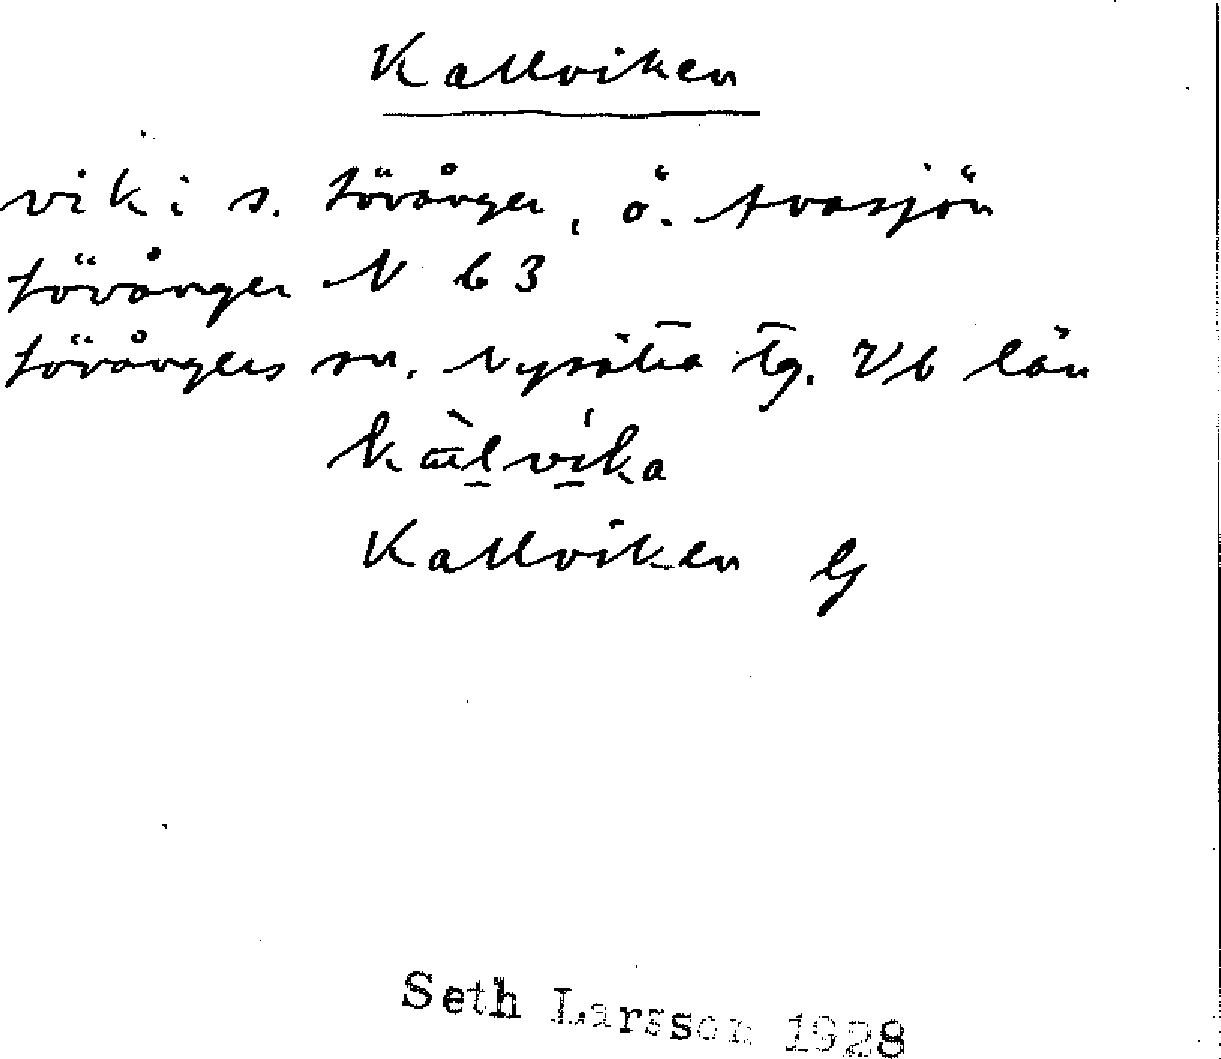 Kallviken
vik i s. Lövånger, ö. Avasjön
Lövånger N b 3
Lövångers sn. Nysätra tg. Vb län
Kallviken G
Seth Larsson 1928